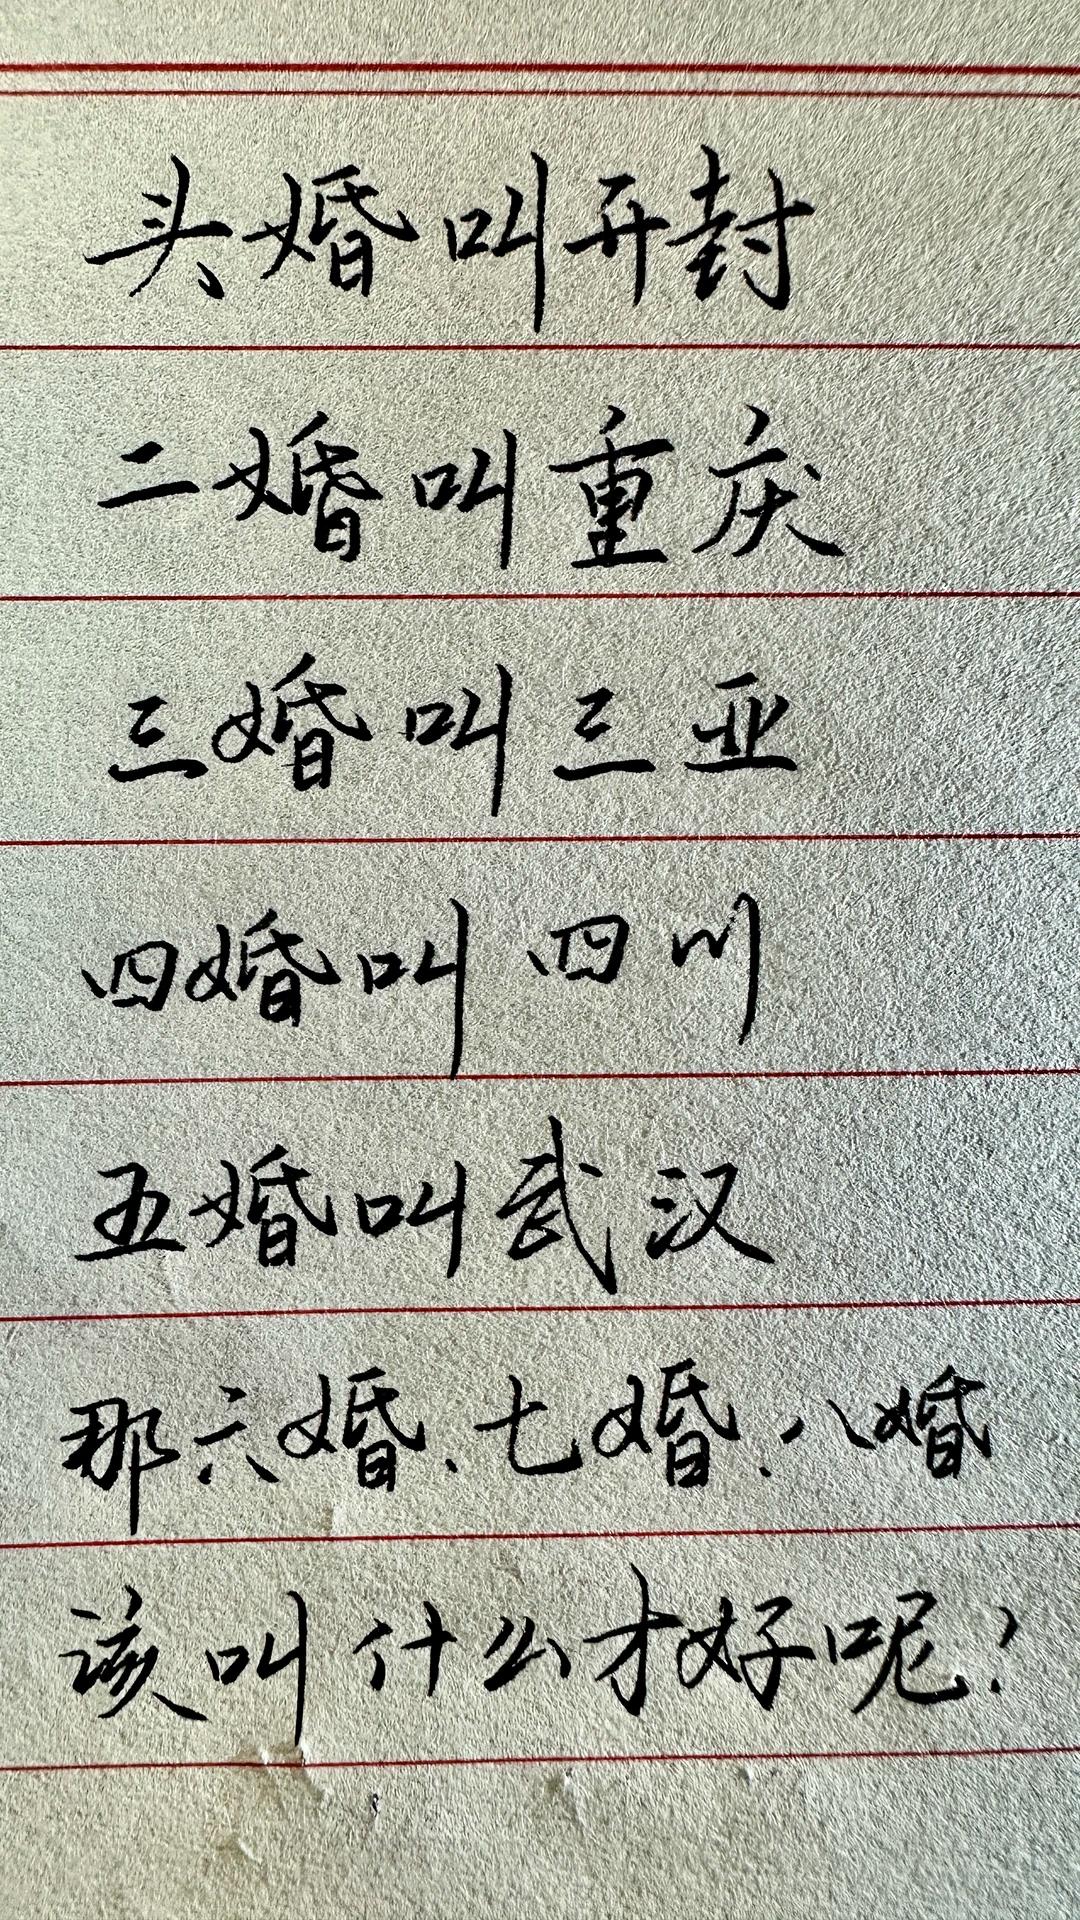 头婚叫开封
二婚叫重庆
三婚叫三亚
四婚叫四川
五婚叫武汉
那六婚、七婚、八婚
该叫什么才好呢？